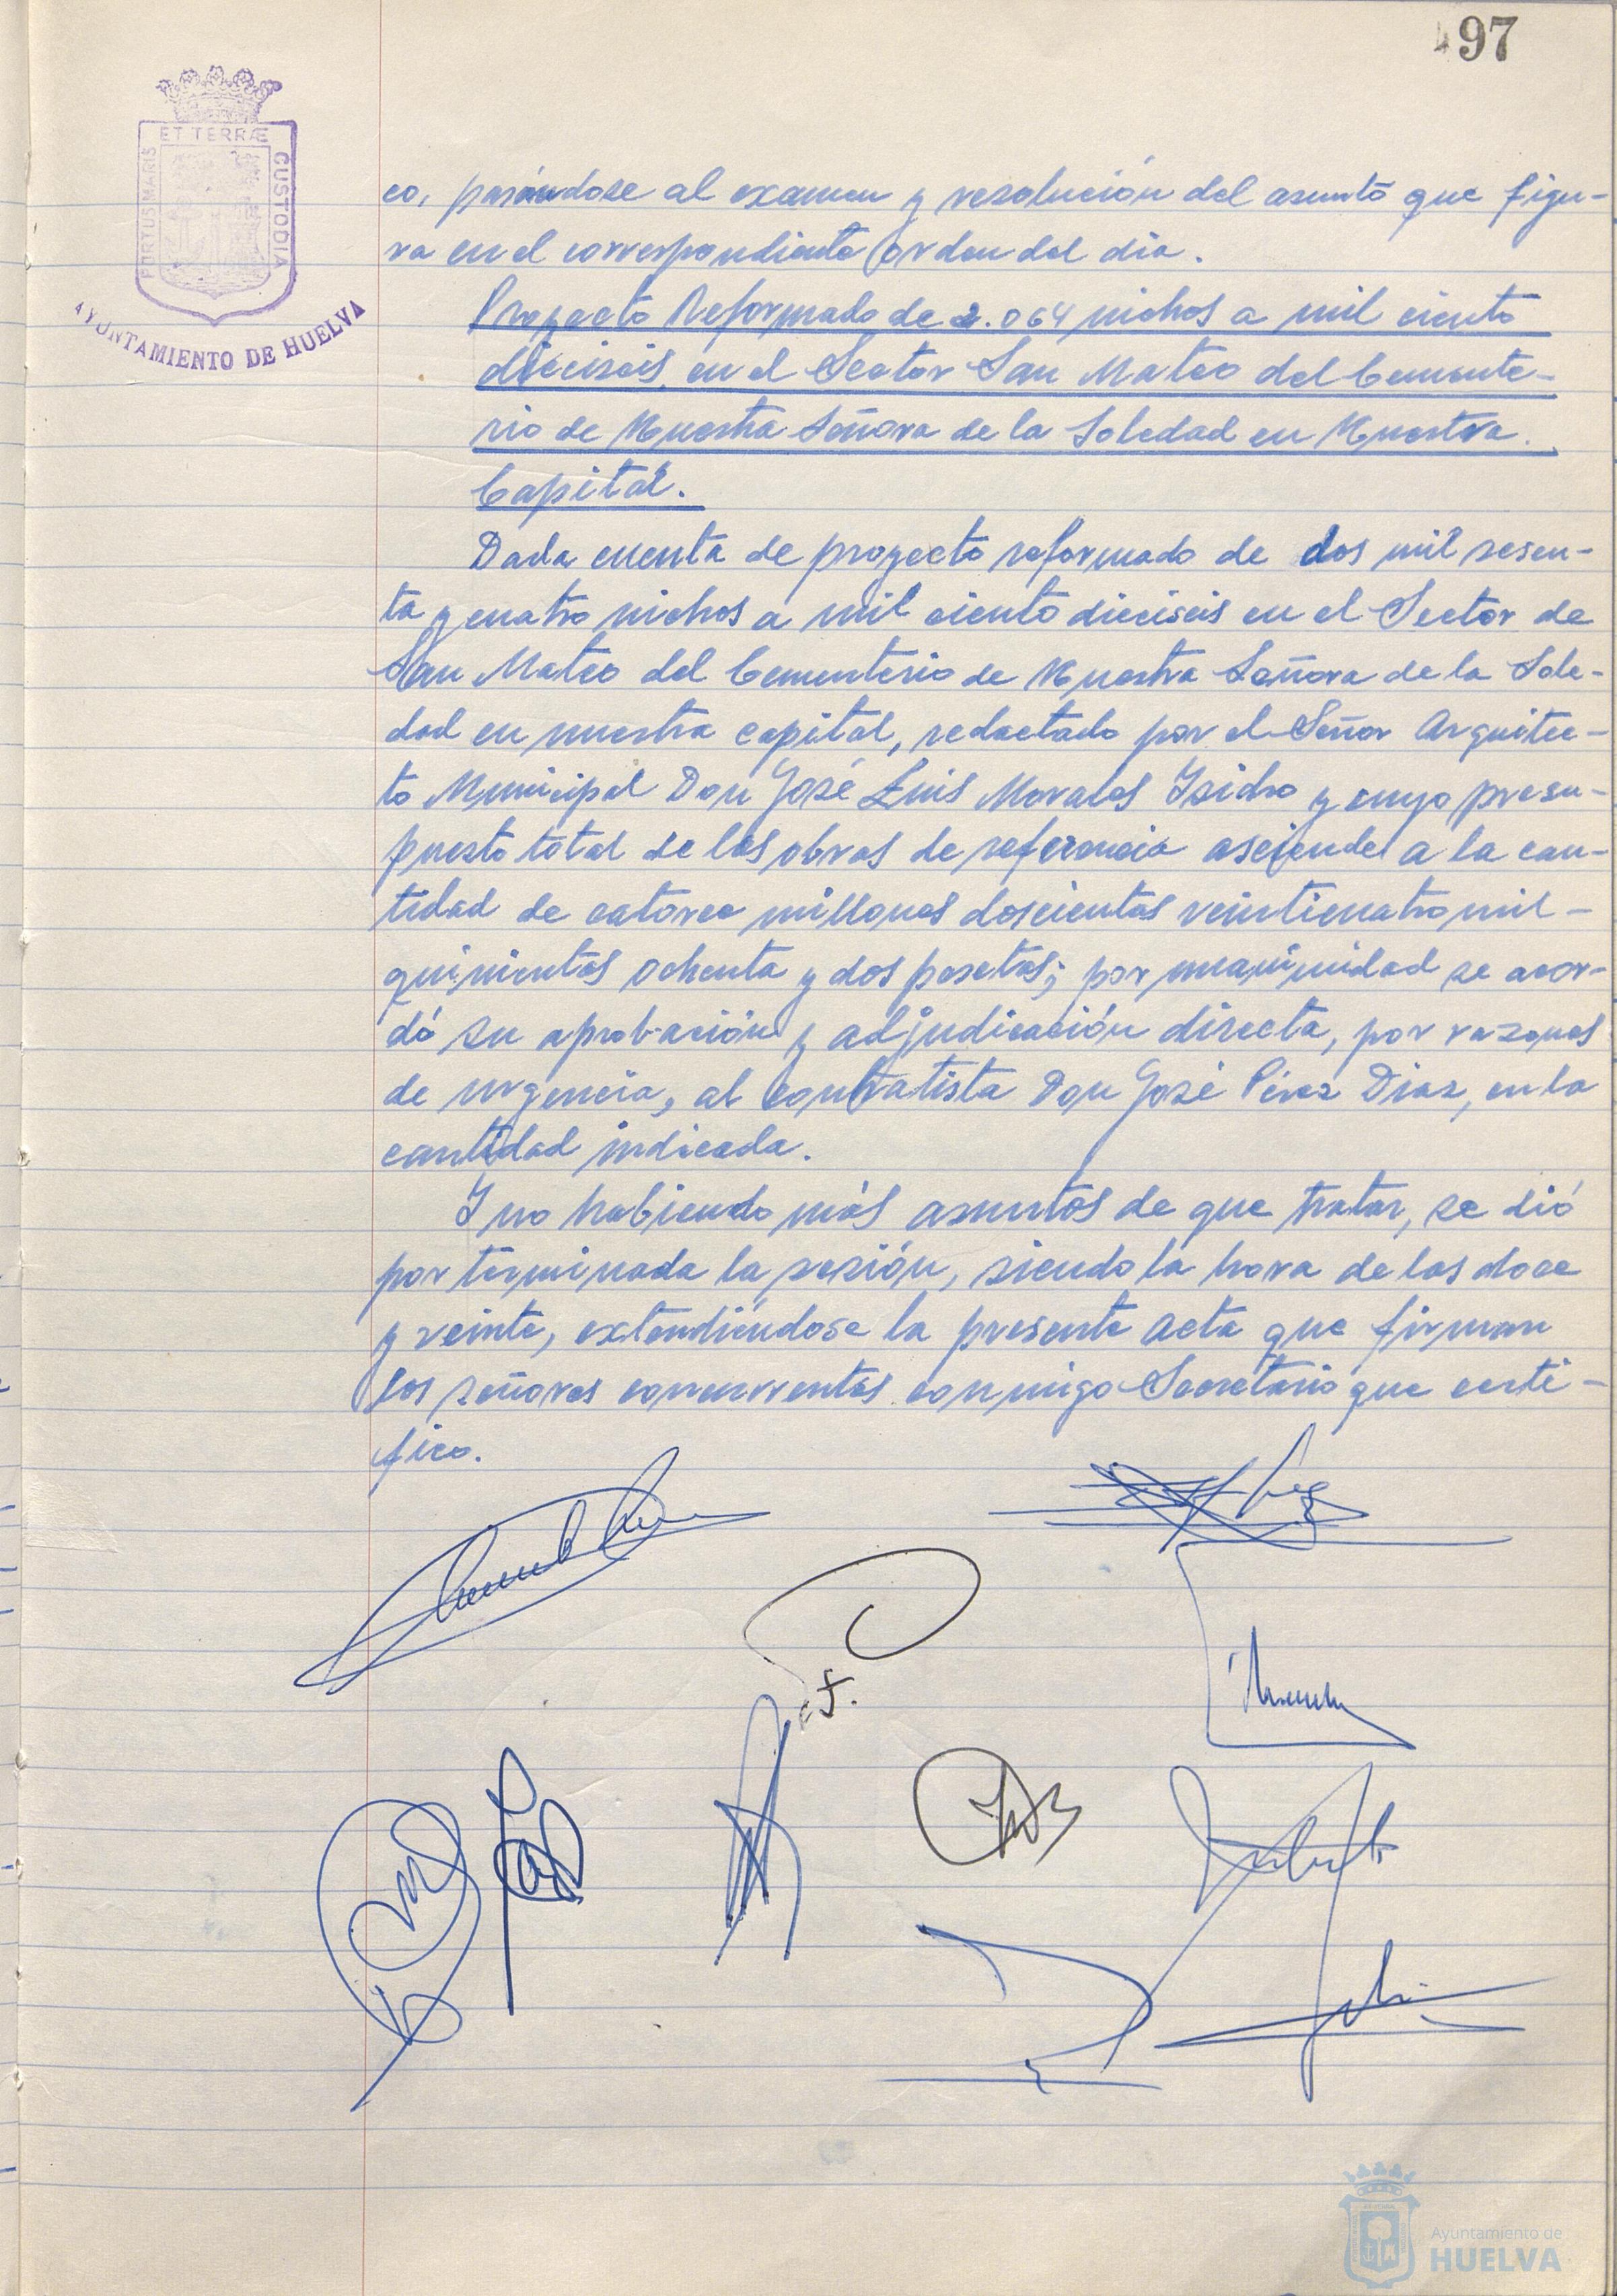 97
ET TERRÆ
PORTUS MARIS
CUSTODIA
AYUNTAMIENTO DE HUELVA
co, pasándose al examen y resolución del asunto que figu-
ra en el correspondiente orden del día.
Proyecto Reformado de 2.064 nichos a mil ciento
dieciseis, en el Sector San Mateo del Cemente-
rio de Nuestra Señora de la Soledad en Nuestra
Capital.
Dada cuenta de proyecto reformado de dos mil sesen-
ta y cuatro nichos a mil ciento dieciseis en el Sector de
San Mateo del Cementerio de Nuestra Señora de la Sole-
dad en nuestra capital, redactado por el Señor Arquitec-
to Municipal Don José Luis Morales Isidro y cuyo presu-
puesto total de las obras de referencia asciende a la can-
tidad de catorce millones doscientas veinticuatro mil -
quinientas ochenta y dos pesetas; por unanimidad se acor-
dó su aprobación y adjudicación directa, por razones
de urgencia, al contratista Don José Pérez Diaz, en la
cantidad indicada.
Y no habiendo más asuntos de que tratar, se dió
por terminada la sesión, siendo la hora de las doce
y veinte, extendiéndose la presente acta que firman
los señores concurrentes conmigo Secretario que certi-
fico.
Ayuntamiento de
HUELVA